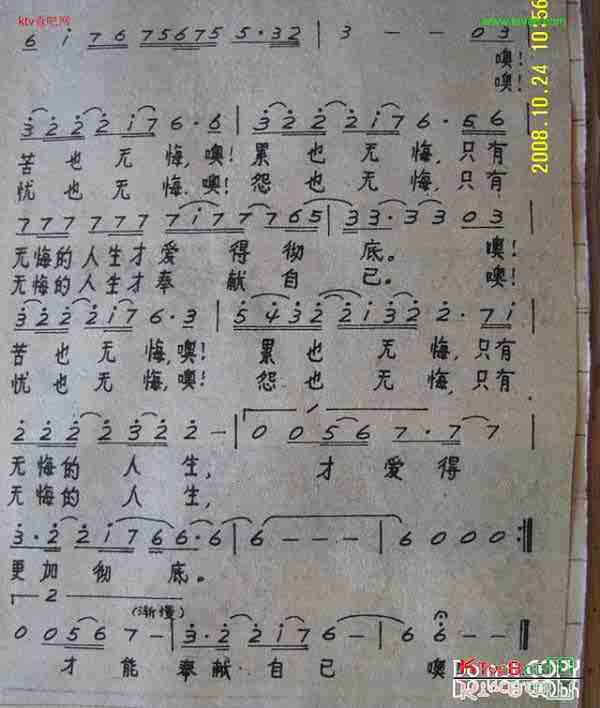 ktv查吧网
2008.10.24 10:56
6 i 7 6 7 5 6 7 5 5 · 3 2 | 3 - - 0 3
噢!
噢!
3 2 2 2 i 7 6 · 6 | 3 2 2 2 i 7 6 · 5 6
苦也无悔,噢!累也无悔,只有
忧也无悔,噢!怨也无悔,只有
7 7 7 7 7 7 7 i 7 7 7 6 5 | 3 3 · 3 3 0 3
无悔的人生才爱得彻底。噢!
无悔的人生才奉献自己。噢!
3 2 2 2 i 7 6 · 3 | 5 4 3 2 2 i 3 2 2 · 7 i
苦也无悔,噢!累也无悔,只有
忧也无悔,噢!怨也无悔,只有
2 2 2 2 3 2 2 - | 0 0 5 6 7 · 7 7
无悔的人生,才爱得
无悔的人生,
3 · 2 2 i 7 6 6 · 6 | 6 - - - | 6 0 0 0 :‖
更加彻底。
2
(渐慢)
0 0 5 6 7 - | 3 · 2 2 i 7 6 | 6 - - - | 6 6 - -
才能奉献自己噢